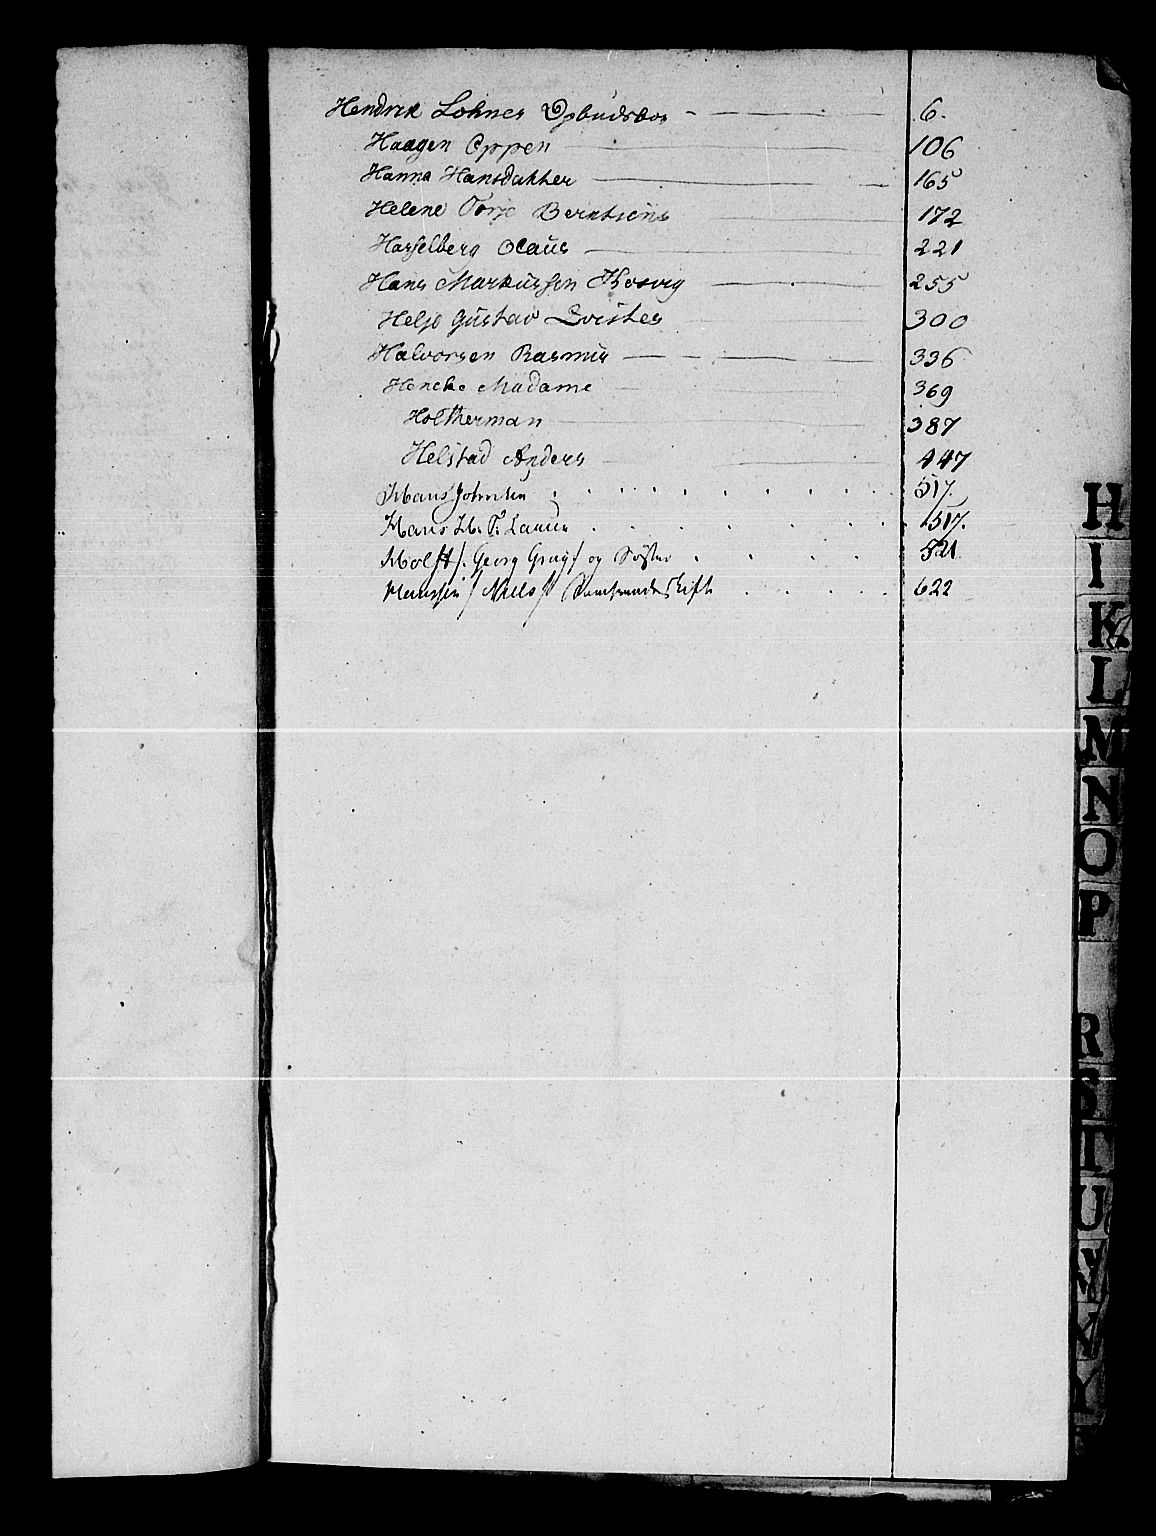 Hendrek Lohnes Opbudsboe 6.
Haagen Oppen 106
Hanna Hansdatter 165
Helene Torje Berntsens 172
Hasselberg Olaus 221
Hans Markussen Kosvig 255
Helje Gustav 300
Halvorsen Rasmus 336
Hencke Madame 369
Holtherman 387
Helstad Anders 447
Hans Johnsen 517.
Hans H. T. 517.
Holst /: Georg og Søster 521.
Hanssen / Niels / 622
H
I
K
L
M
N
O
P
R
S
T
U
V
Y